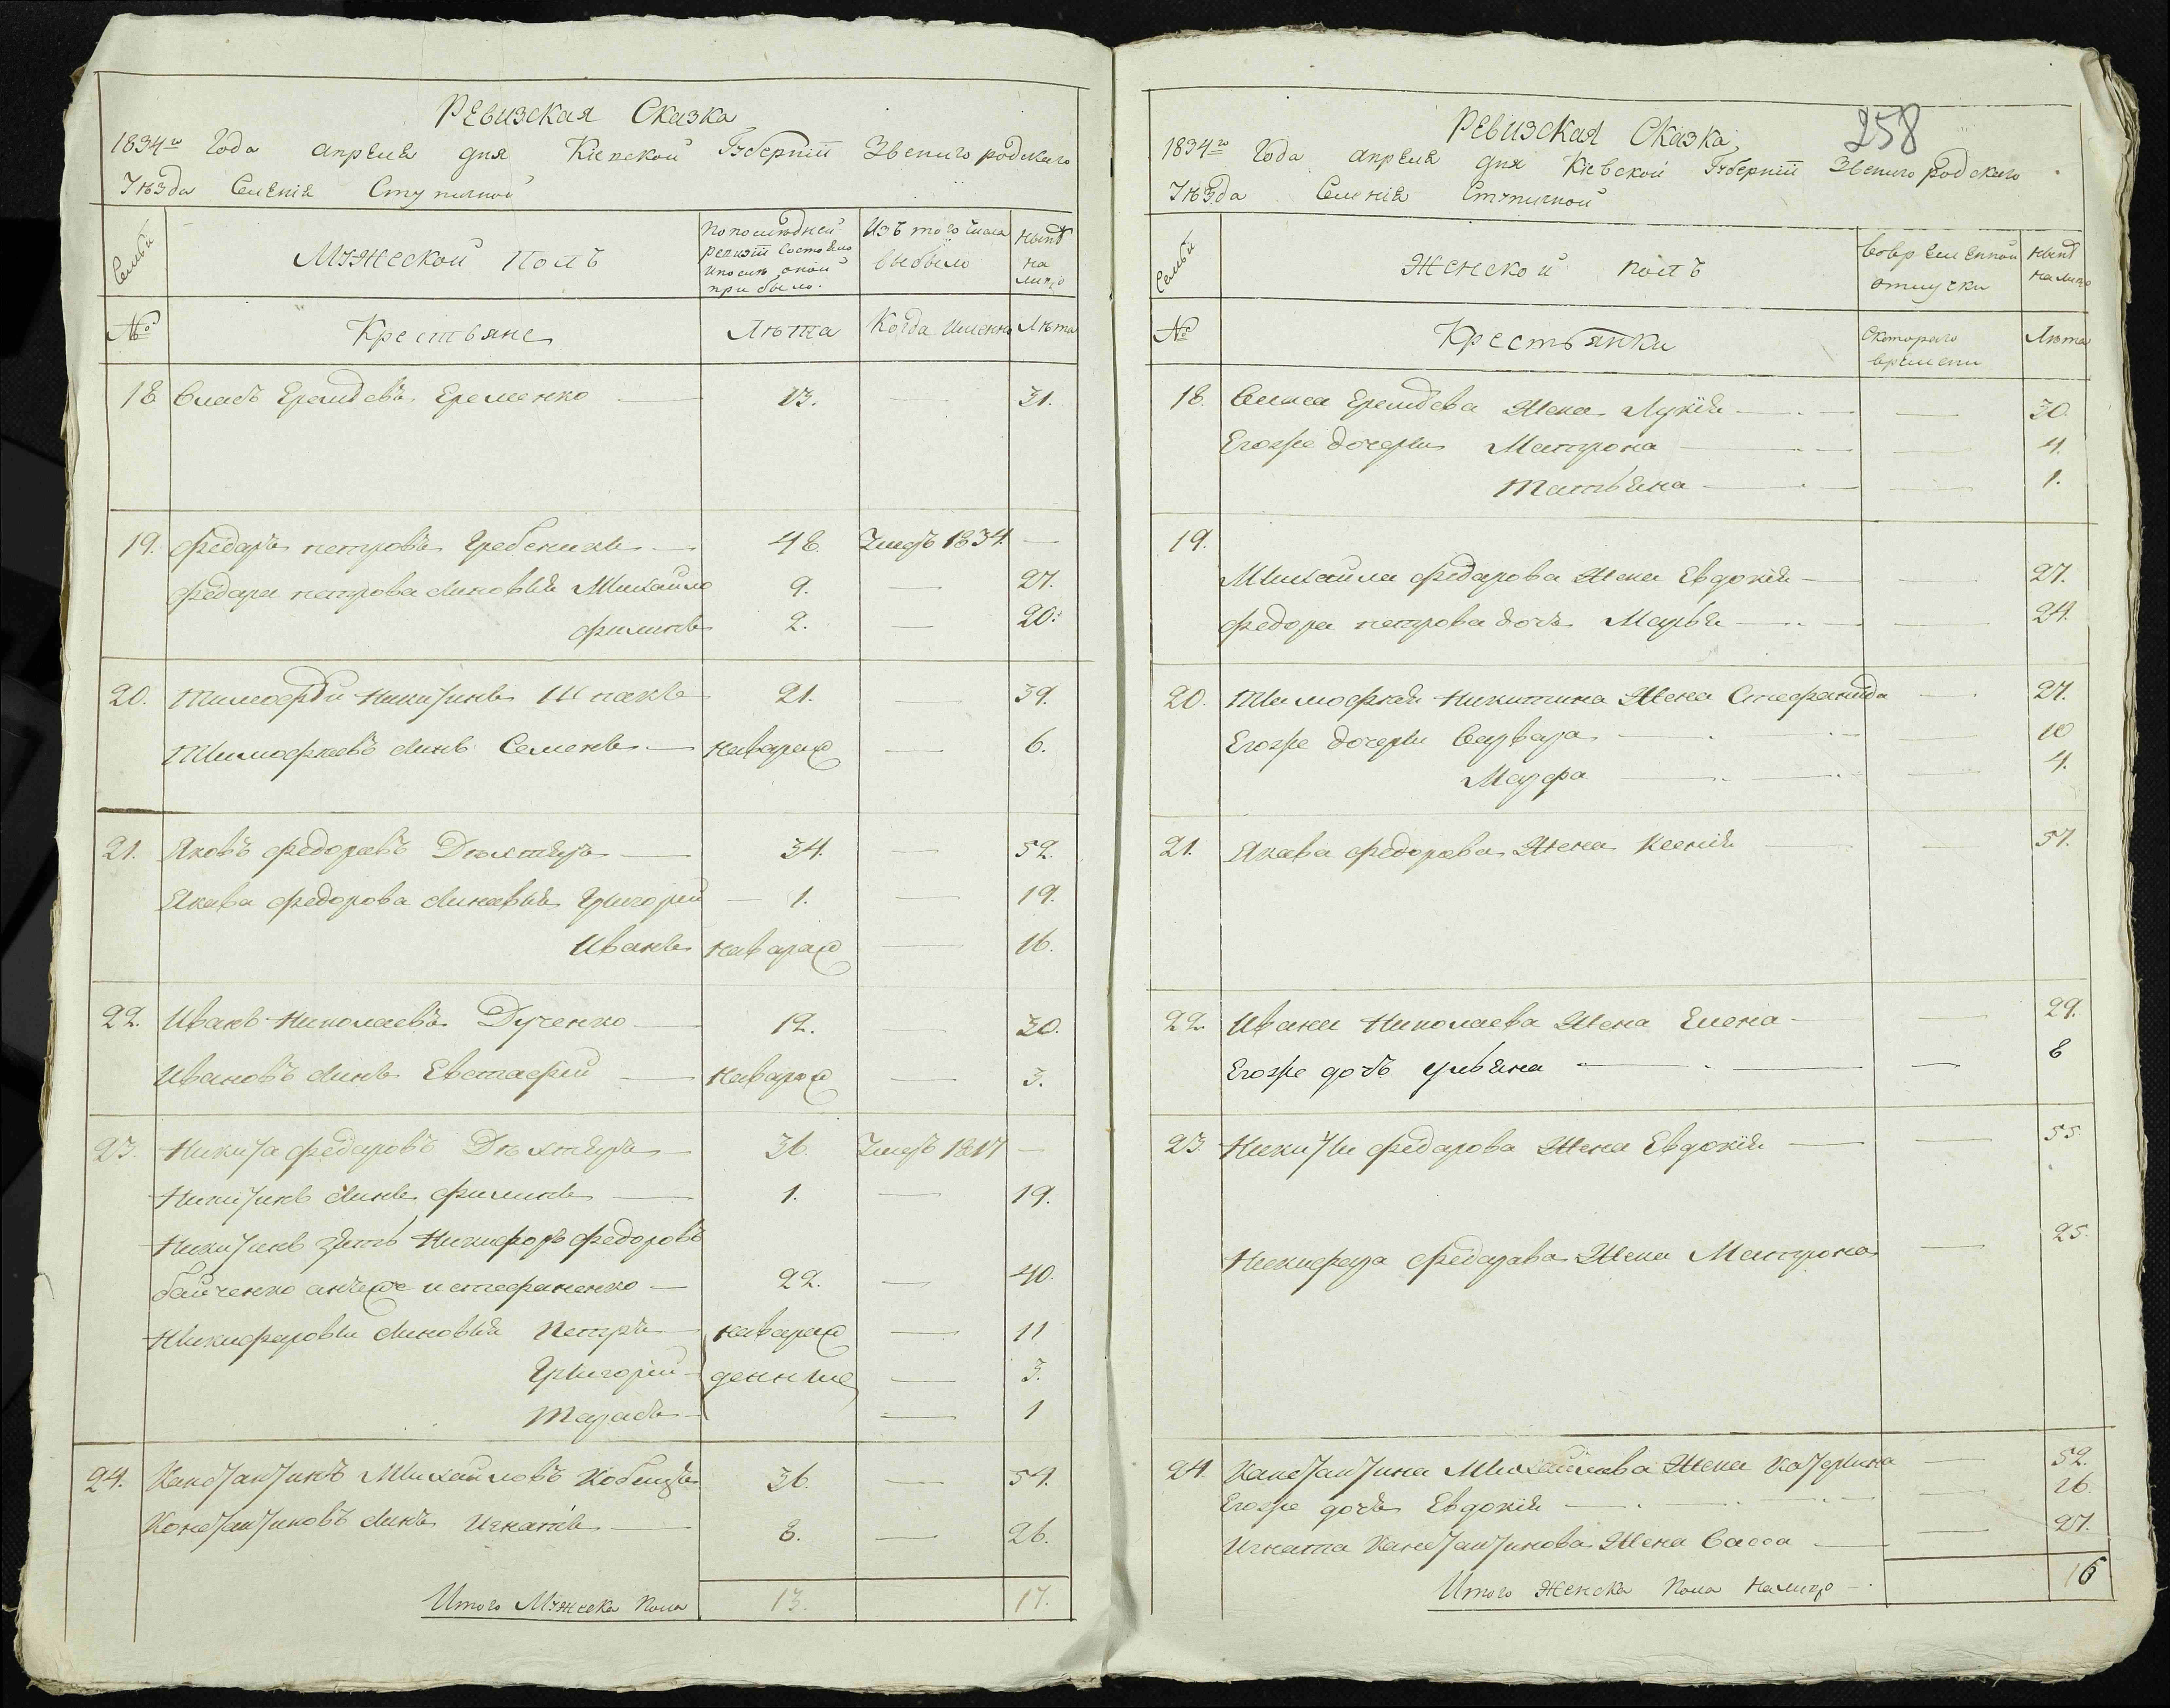 Ревизская Сказка
1834го Года апреля дня Киевской Губернїи Звенигородскаго
Уѣзда Селенія Ступичной
Семьи
Мужеской полъ
По последней ревизїи состояло и после оной прибыло.
Изъ того числа выбыло
Ныне на лицо
№
Крестьяне
Лѣта
Когда именно
Лѣта
18 Власъ Еремѣевъ Еременко 13. 31.
19. Федоръ петровъ Гребеникъ 48. Умеръ 1834. —
Федора петрова сыновья Михайло 9. 27.
Филипъ 2. 20.
20. Тимофѣй Никитинъ Шпакъ 21. 39.
Тимофѣевъ сынъ Семенъ Наварож 6.
21. Яковъ Федоровъ Дѣхтяръ 34. 52.
Якова Федорова сыновья Григорий 1. 19.
Иванъ Наварож 16.
22. Иванъ Николаевъ Дученко 12. 30.
Ивановъ сынъ Евстафий Наварож 3.
23. Никита Федоровъ Дѣхтяръ 36. Умеръ 1817 —
Никитинъ сынъ Филипъ 1. 19.
Никитинъ зять Никифоръ Федоровъ
байченко онъже и стефаненко 22. 40.
Никифоровы сыновья Петръ наварож 11
Григорий денные 3.
Тарасъ 1
24. Константинъ Михайловъ Кобецъ 36. 54.
Константиновъ сынъ Игнатъ 8. 26.
Итого Мужеска пола 13. 17.
Ревизская Сказка 258
1834го Года апреля дня Кїевской Губернїи Звенигородскаго
Уѣзда Селенія Ступичной
Семьи
Женской полъ
Во временной отлучки
Ныне на лицо
№
Крестьянки
С котораго времени
Лѣта
18. Власа Еремѣева жена Лукїя 30.
Его же дочери Матрона 4.
Татьяна 1.
19.
Михайла Федорова жена Евдокїя 27.
Федора петрова дочь Марья 24.
20. Тимофѣя Никитина жена Стефанида 27.
Егоже дочери Варвара 10
Марфа 4.
21. Якова Федорова жена Ксенїя 57.
22. Ивана Николаева жена Елена 29.
Егоже дочь ульяна 8
23. Никиты Федорова жена Евдокїя 55.
Никифора Федорова жена Матрона 25.
24. Константина Михайлова жена Катерина 52.
Егоже дочь Евдокїя 16.
Игната Константинова жена Васса 27.
Итого Женска пола налицо 16